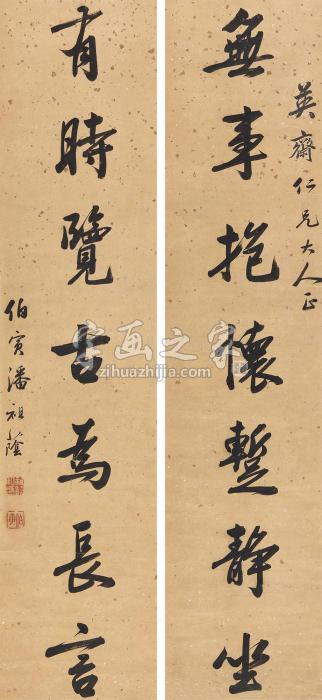 英齋仁兄大人正
無事抱懷蹔静坐
有時覽古為長言
伯寅潘祖蔭
字画之家
zihuazhijia.com